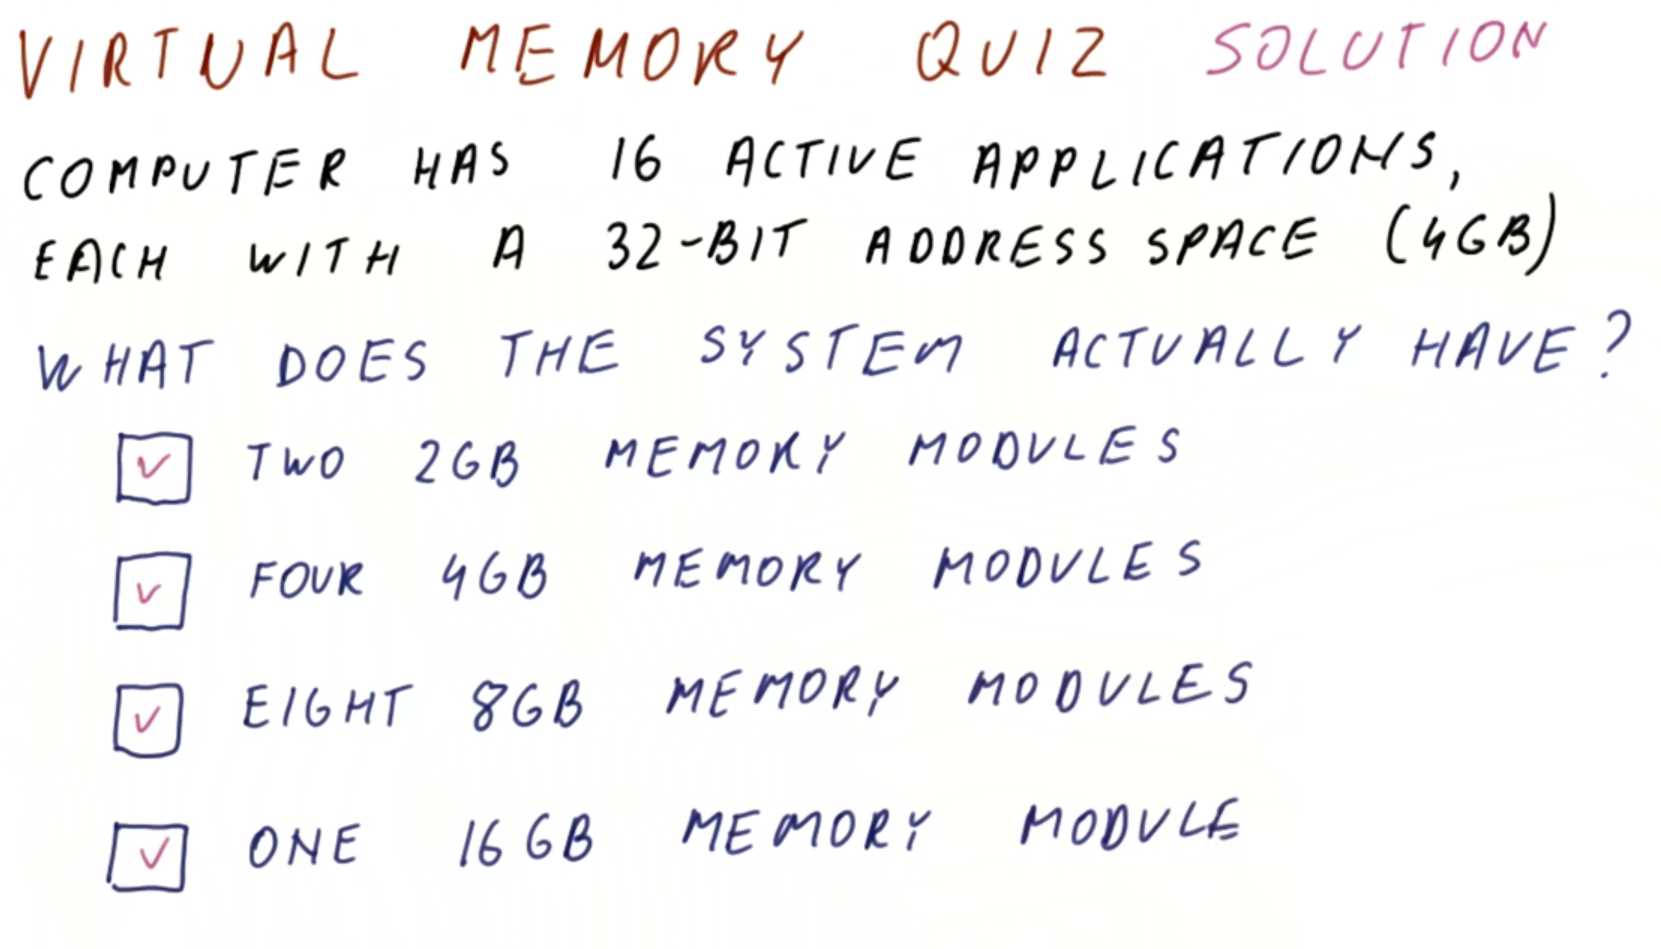 VIRTUAL MEMORY QUIZ SOLUTION
COMPUTER HAS 16 ACTIVE APPLICATIONS,
EACH WITH A 32-BIT ADDRESS SPACE (4GB)
WHAT DOES THE SYSTEM ACTUALLY HAVE?
TWO 2GB MEMORY MODULES
FOUR 4GB MEMORY MODULES
EIGHT 8GB MEMORY MODULES
ONE 16GB MEMORY MODULE